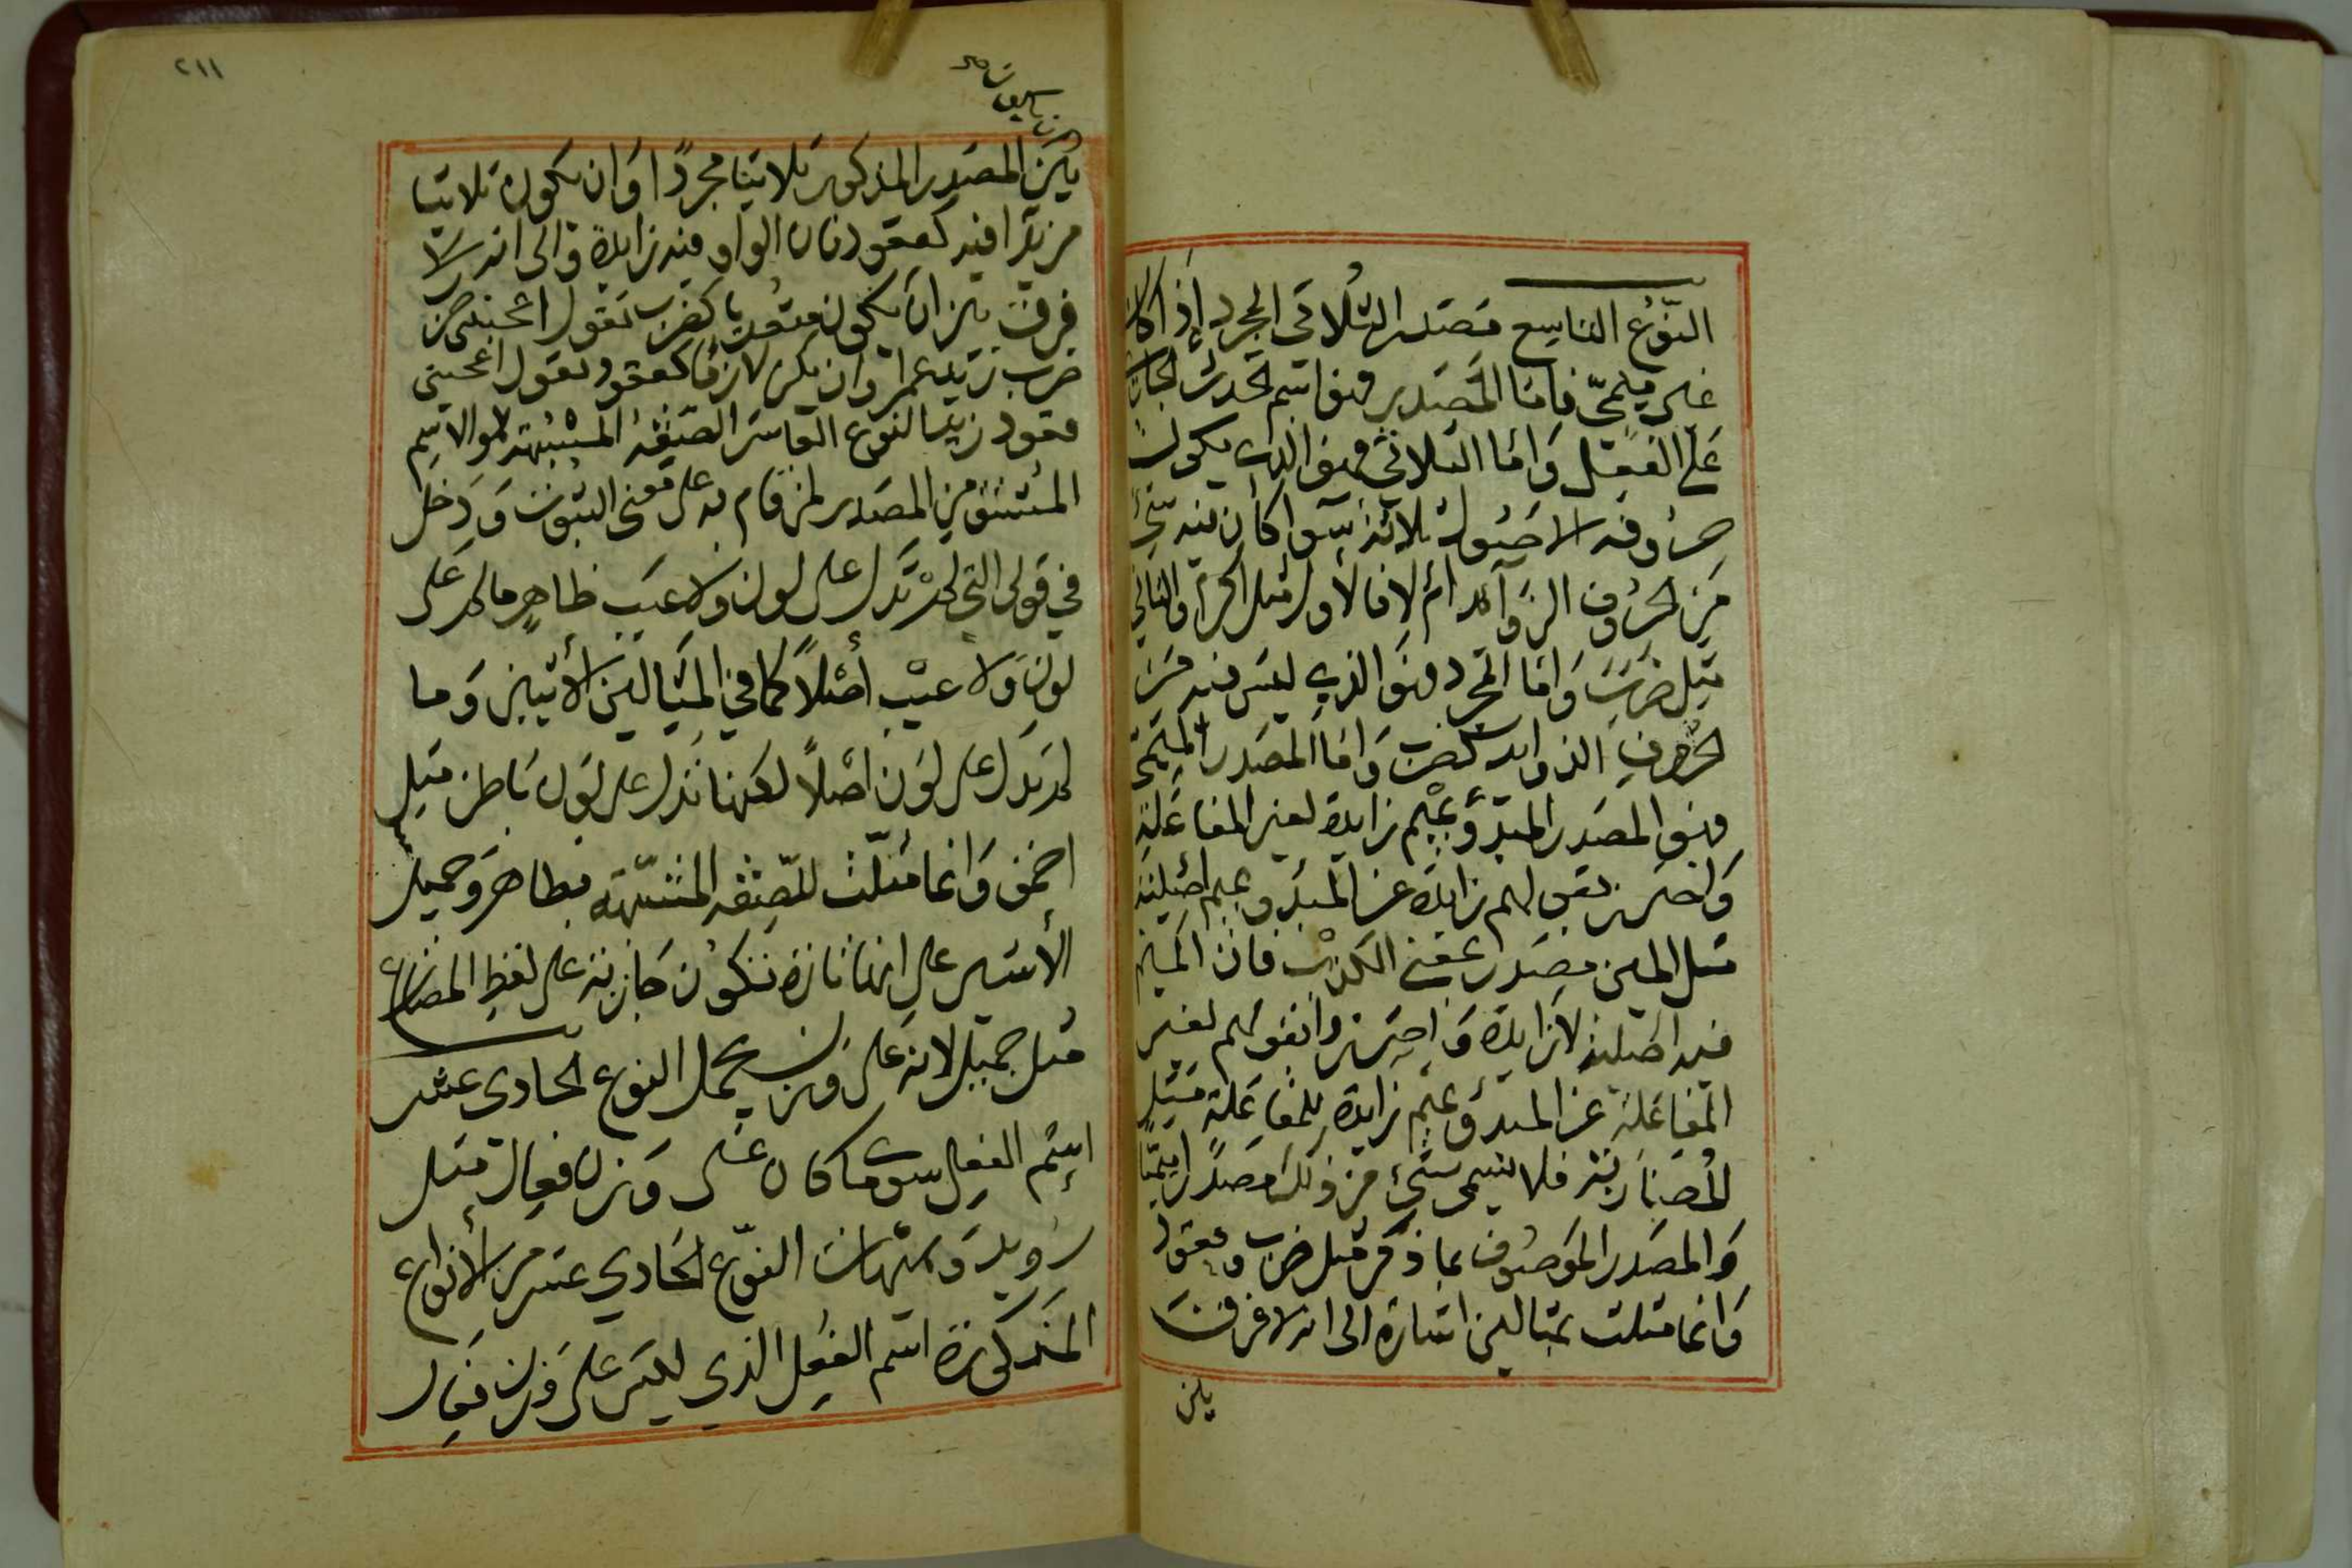 النوع التاسع مصدر الثلاثي المجرد إذا كان
غير ميمي فاما المصدر فهو اسم الحدث الجاري
على الفعل واما الثلاثي فهو الذي يكون
حروفه الاصول ثلاثة سوا كان فيه شئ
من الحروف الزوائد ام لا فالأول مثل اكرام والثاني
مثل ضرب واما المجرد فهو الذي ليس فيه من
الحروف الزوايد كضرب واما المصدر الميمي
فهو المصدر المبدؤ بميم زايدة لغير المفاعلة
واحترز بقولهم زايدة عن المبدؤ بميم اصلية
مثل المين مصدر بمعنى الكذب فان الميم
فيه اصلية لا زايدة واحترزوا بقولهم لغير
المفاعلة عن المبدؤ بميم زايدة للمفاعلة مثل
المضاربة فلا يسمى شئ من ذلك مصدرا ميميا
والمصدر الموصوف بما ذكر مثل ضرب وقعود
وانما مثلت بمثالين اشارة الى انه لا فرق
بين
٢١١
بين المصدر المذكور ثلاثيا مجردا وان يكون ثلاثيا
مزيدا فيه كقعود فان الواو فيه زايدة والى انه لا
فرق بين ان يكون متعديا كضرب تقول اعجبني
ضرب زيد عمرا وان يكون لازما كقعود تقول اعجبني
قعود زيد النوع العاشر الصفة المشبهة وهو الاسم
المشتق من المصدر لمن قام به على معنى الثبوت ودخل
في قولى التي لم تدل على لون ولا عيب ظاهر ما لم يدل على
لون ولا عيب أصلاً كما في المثالين الأتيين وما
لم يدل على لون اصلاً لكنها تدل على لون باطن مثل
احمق وانما مثلت للصفة المشبهة بطاهر وجميل
الأشير على انها تارة تكون جارية على لفظ المضارع
مثل جميل لانه على وزن يجمل النوع الحادي عشر
إسم الفعل سوى ما كان على وزن فعال مثل
رويد وهيهات النوع الحادي عشر من الأنواع
المذكورة اسم الفعل الذي ليس على وزن فعال